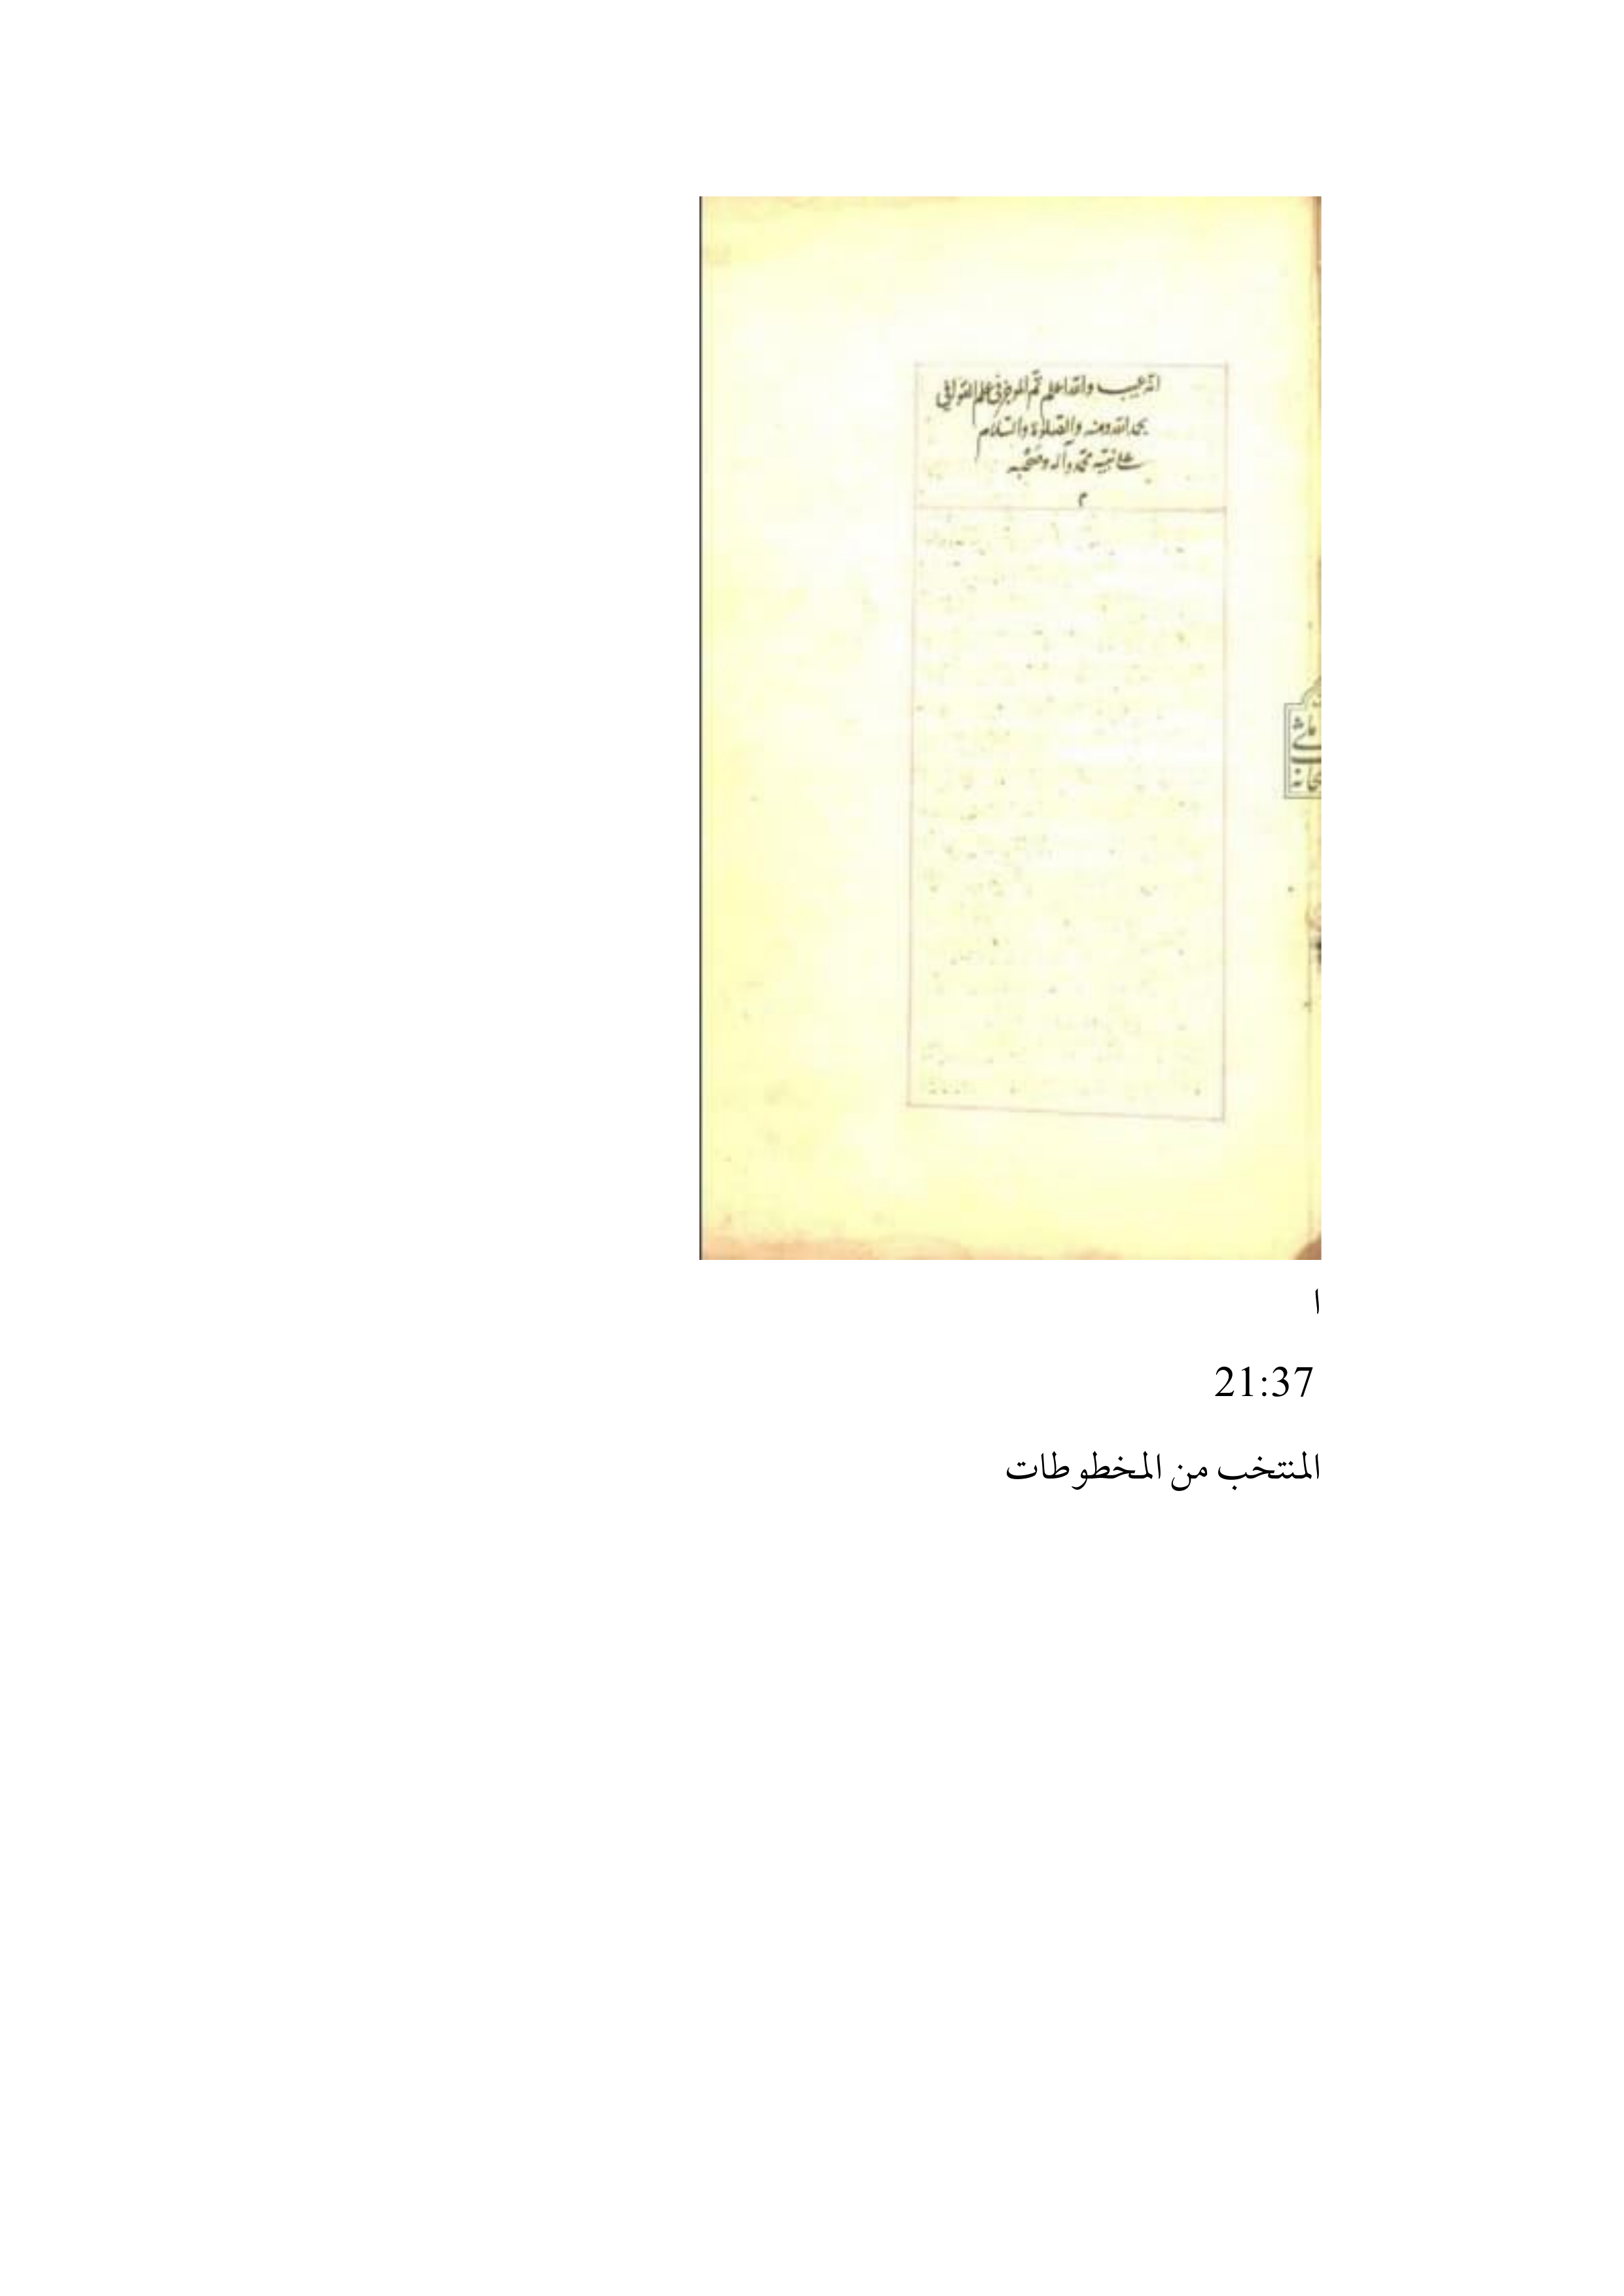 انه عيب والله اعلم تم الموجز فى علم القوافى
بحمد الله ومنه والصلاة والسلام
على نبيه محمد وآله وصحبه
م
ا
21:37
المنتخب من المخطوطات